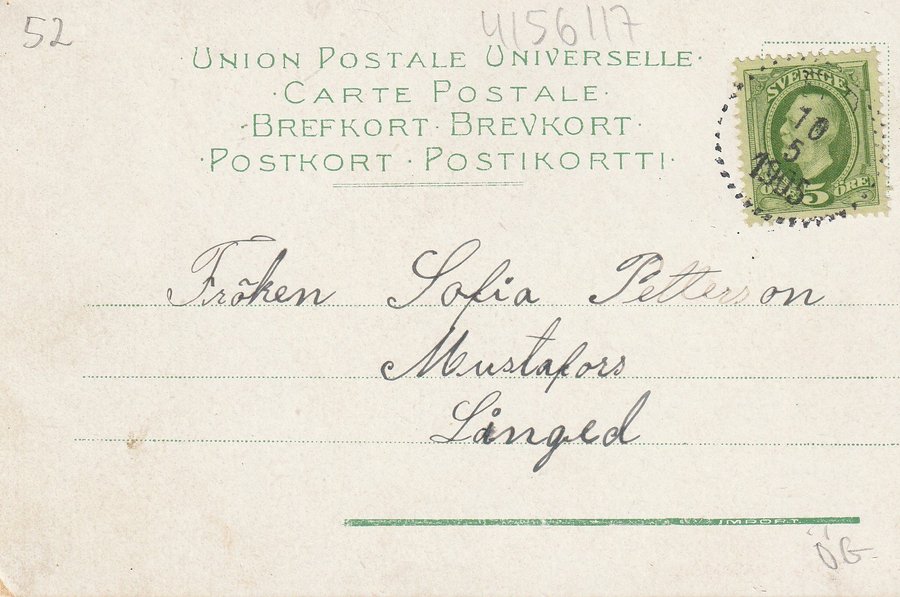 52
4156117
·UNION POSTALE UNIVERSELLE·
·CARTE POSTALE·
·BREFKORT·BREVKORT·
·POSTKORT·POSTIKORTTI·
SVERIGE
10
5
1905
5 ÖRE
Fröken Sofia Petterson
Mustafors
Långed
IMPORT.
ÖG